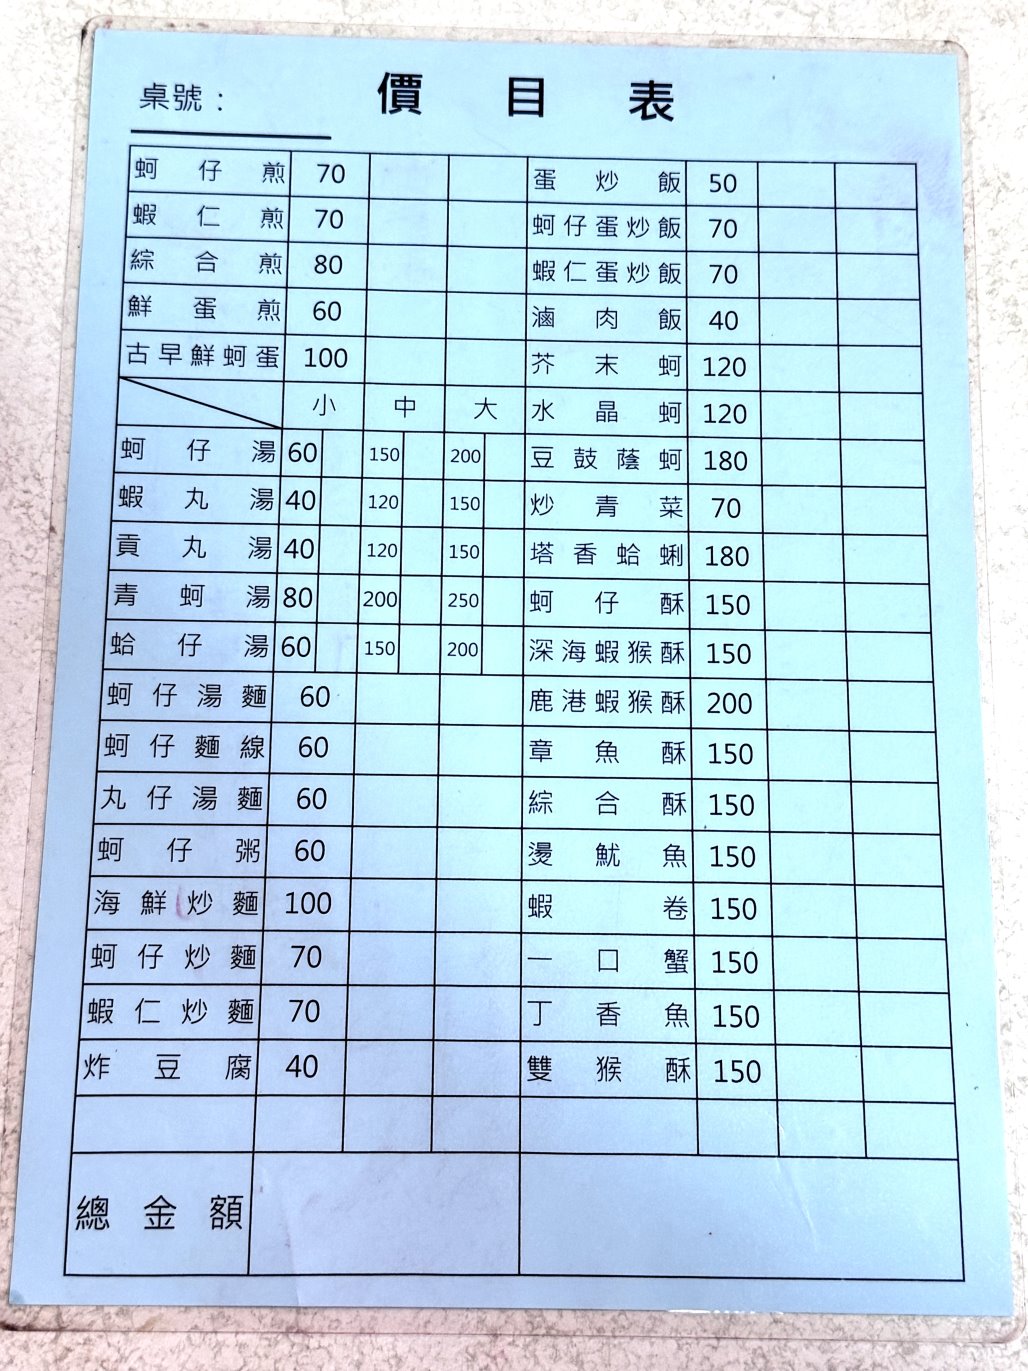 價目表
桌號：
蚵仔煎 70 蛋炒飯 50
蝦仁煎 70 蚵仔蛋炒飯 70
綜合煎 80 蝦仁蛋炒飯 70
鮮蛋煎 60 滷肉飯 40
古早鮮蚵蛋 100 芥末蚵 120
小 中 大 水晶蚵 120
蚵仔湯 60 150 200 豆鼓蔭蚵 180
蝦丸湯 40 120 150 炒青菜 70
貢丸湯 40 120 150 塔香蛤蜊 180
青蚵湯 80 200 250 蚵仔酥 150
蛤仔湯 60 150 200 深海蝦猴酥 150
蚵仔湯麵 60 鹿港蝦猴酥 200
蚵仔麵線 60 章魚酥 150
丸仔湯麵 60 綜合酥 150
蚵仔粥 60 燙魷魚 150
海鮮炒麵 100 蝦卷 150
蚵仔炒麵 70 一口蟹 150
蝦仁炒麵 70 丁香魚 150
炸豆腐 40 雙猴酥 150
總金額